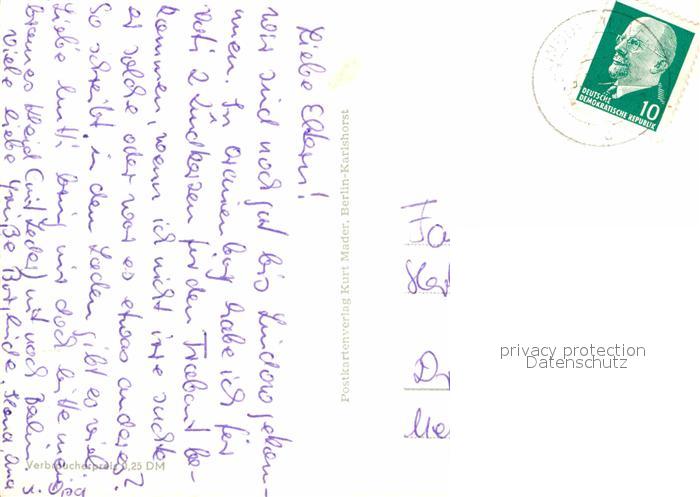 Liebe Eltern!
Wir sind noch gut bis Lindow gekom-
men. In Oranienburg habe ich für
Vati 2 Zündkerzen für den Trabant be-
kommen, wenn ich nicht irre suchte
er solche oder war es etwas anderes?
So schreibt, in den Laden gibt es viel.
Liebe Mutti bring mir doch bitte mein
braunes Kleid (mit Leder) mit nach Berlin.
Viele liebe Grüße
Postkartenverlag Kurt Mader, Berlin-Karlshorst
Verbraucherpreis 0,25 DM
DEUTSCHE
DEMOKRATISCHE REPUBLIK
10
Fa
privacy protection
Datenschutz